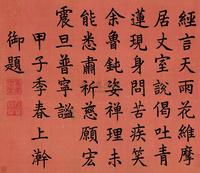 經言天雨花維摩
居丈室說偈吐青
蓮現身問苦疾笑
余魯鈍姿禪理未
能悉肅祈慈願宏
震旦普寧謐
甲子季春上澣
御題